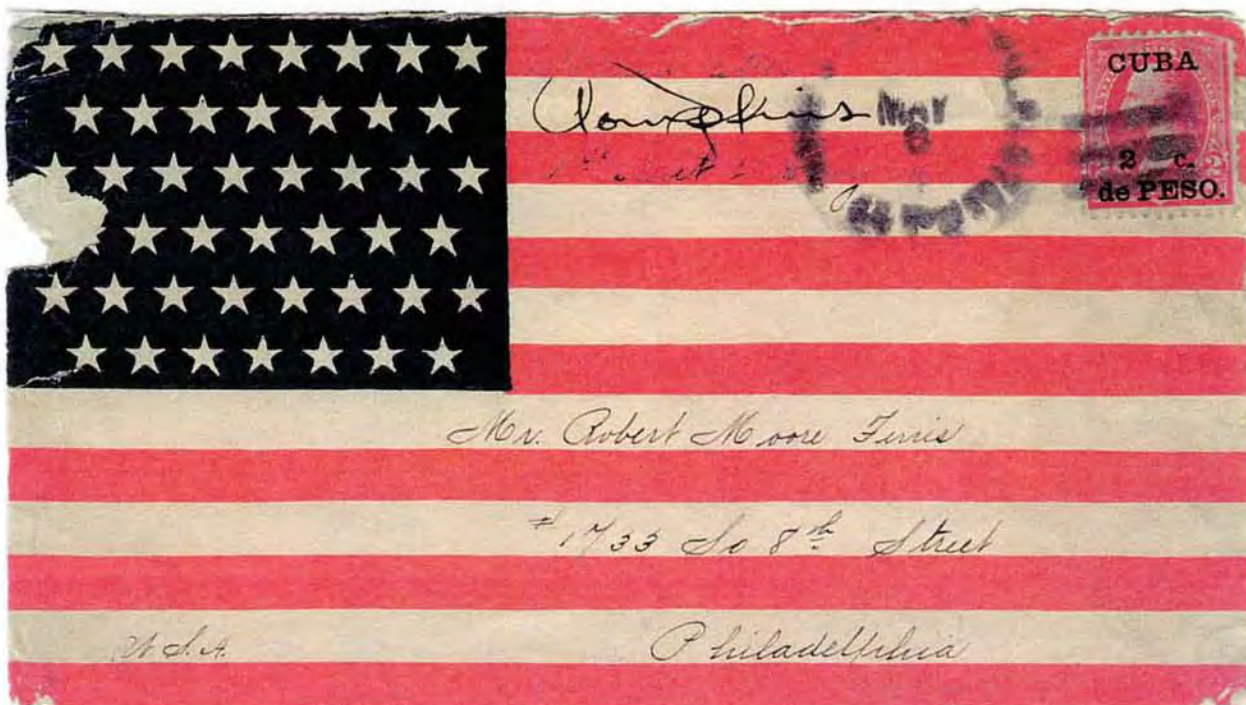 CUBA
2 c.
de PESO.
MAY
Mr. Robert Moore Ferris
# 1733 So 8th Street
Philadelphia
U.S.A.